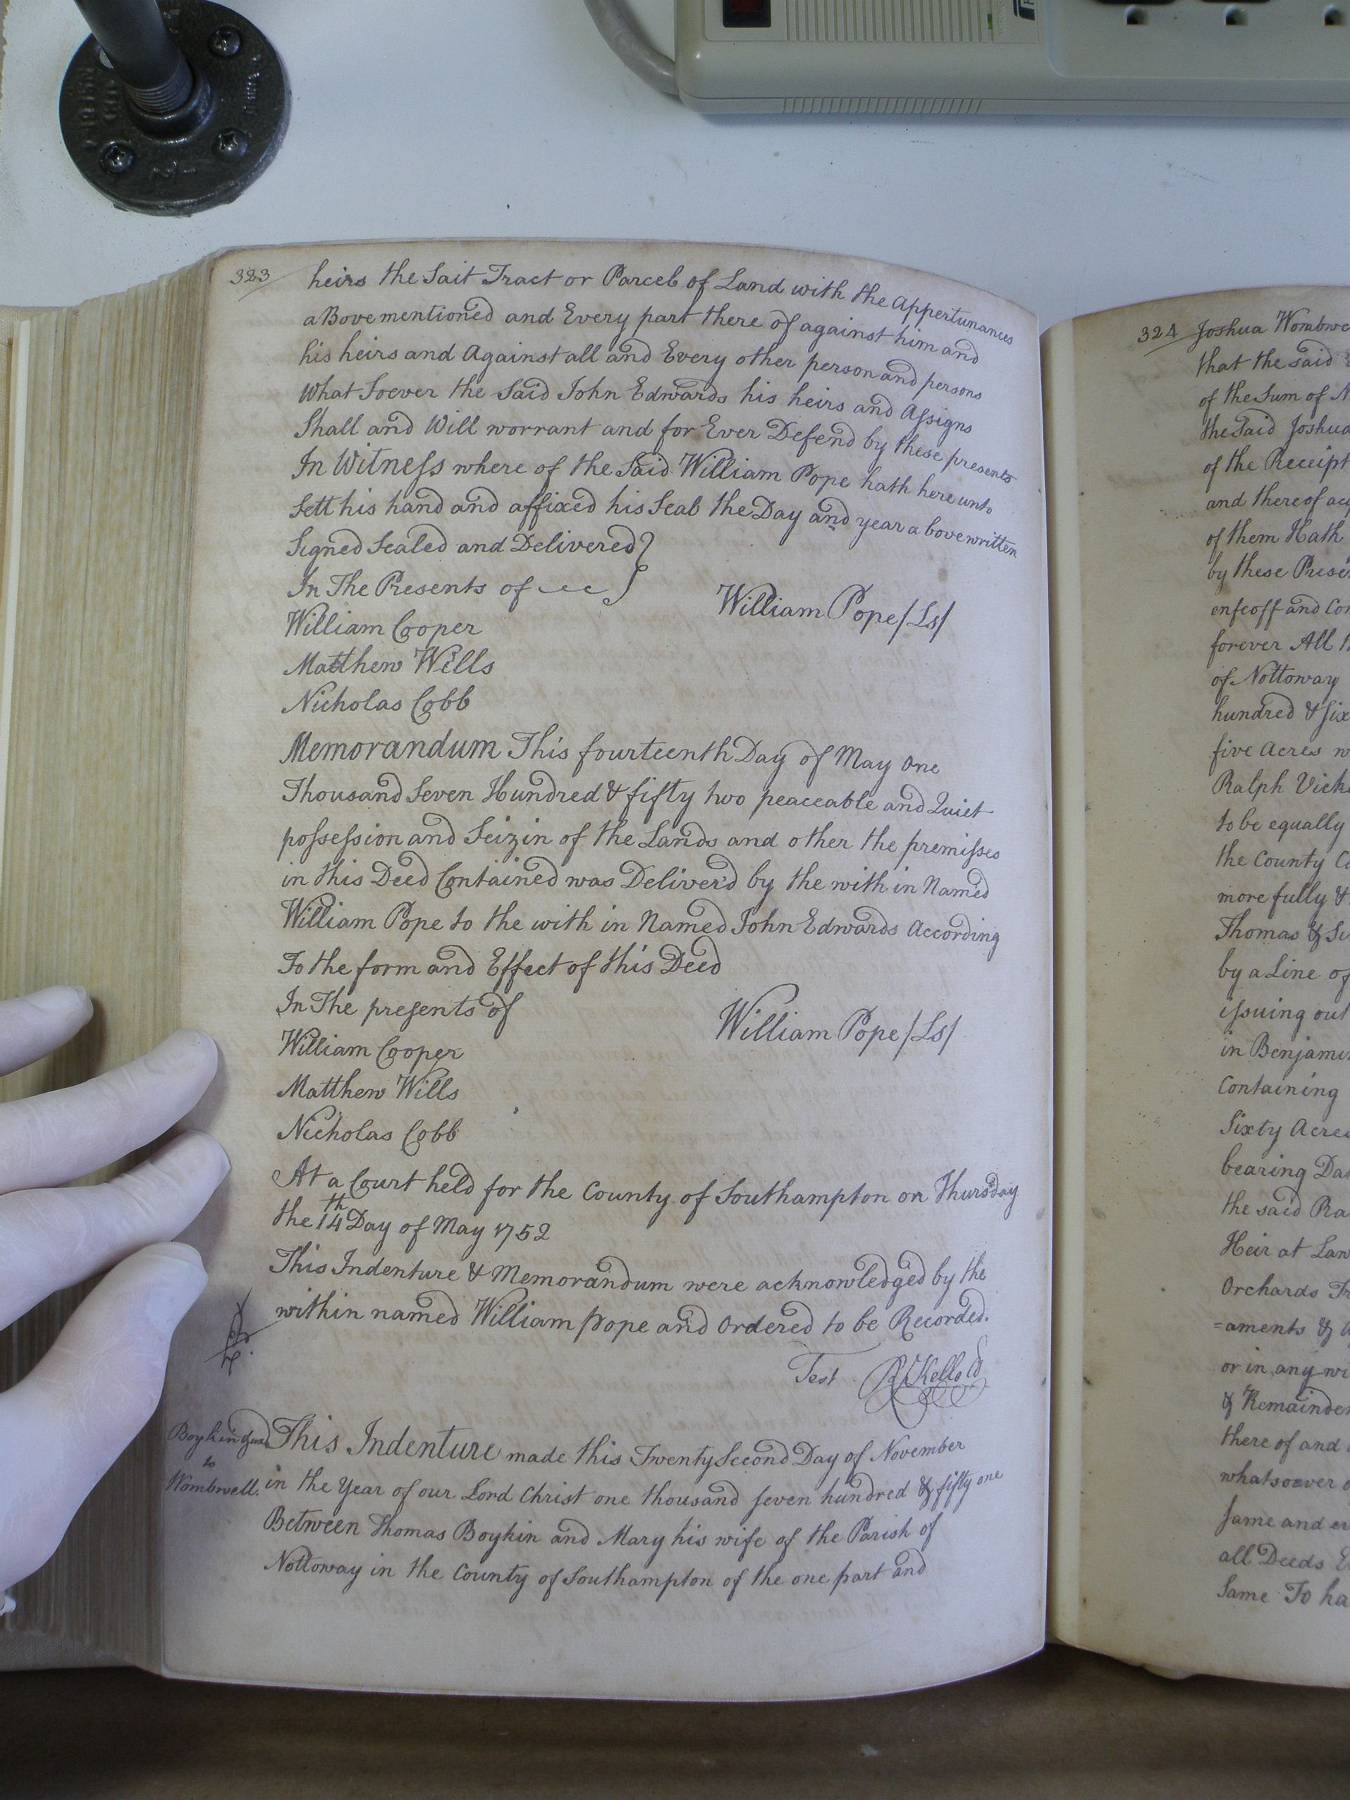 323
heirs the Sait Tract or Parcel of Land with the Appertunances
a Bove mentioned and Every part there of against him and
his heirs and Against all and Every other person and persons
What Soever the Said John Edwards his heirs and Assigns
Shall and Will worrant and for Ever Defend by these presents
In Witness where of the Said William Pope hath here unto
Sett his hand and affixed his Seal the Day and year a bove written
Signed Sealed and Delivered
In The Presents of
William Pope /Ls/
William Cooper
Matthew Wills
Nicholas Cobb
Memorandum This fourteenth Day of May One
Thousand Seven Hundred & fifty two peaceable and Quiet
possession and Seizin of the Lands and other the premisses
in this Deed Contained was Deliver'd by the with in Named
William Pope to the with in Named John Edwards According
To the form and Effect of this Deed
In The presents of
William Pope /Ls/
William Cooper
Matthew Wills
Nicholas Cobb
At a Court held for the County of Southampton on Thursday
the 14th Day of May 1752
This Indenture & Memorandum were acknowledged by the
within named William Pope and Ordered to be Recorded.
Test RKello Cl
Boykin &ux
to
Wombwell.
This Indenture made this Twenty Second Day of November
in the Year of our Lord Christ one thousand seven hundred & fifty one
Between Thomas Boykin and Mary his wife of the Parish of
Nottoway in the County of Southampton of the one part and
324
Joshua
that the said
of the Sum of
the Said Joshua
of the Receipt
and thereof
of them Hath
by these
enfeoff and
forever All
of Nottoway
hundred &
five Acres
Ralph
to be equally
the County
more fully &
Thomas &
by a Line of
issuing out
in
Containing
Sixty Acres
bearing
the said
Heir at
Orchards
=aments &
or in any
&
there of and
whatsoever
Same and
all Deeds
Same To